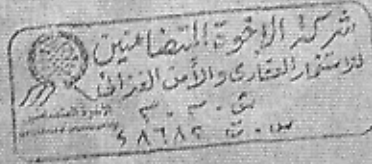 شركة الإخوة المتضامنين
للاستثمار العقارى والأمن الغذائى
ش. م. م
س. ت ٤٨٦٨٢